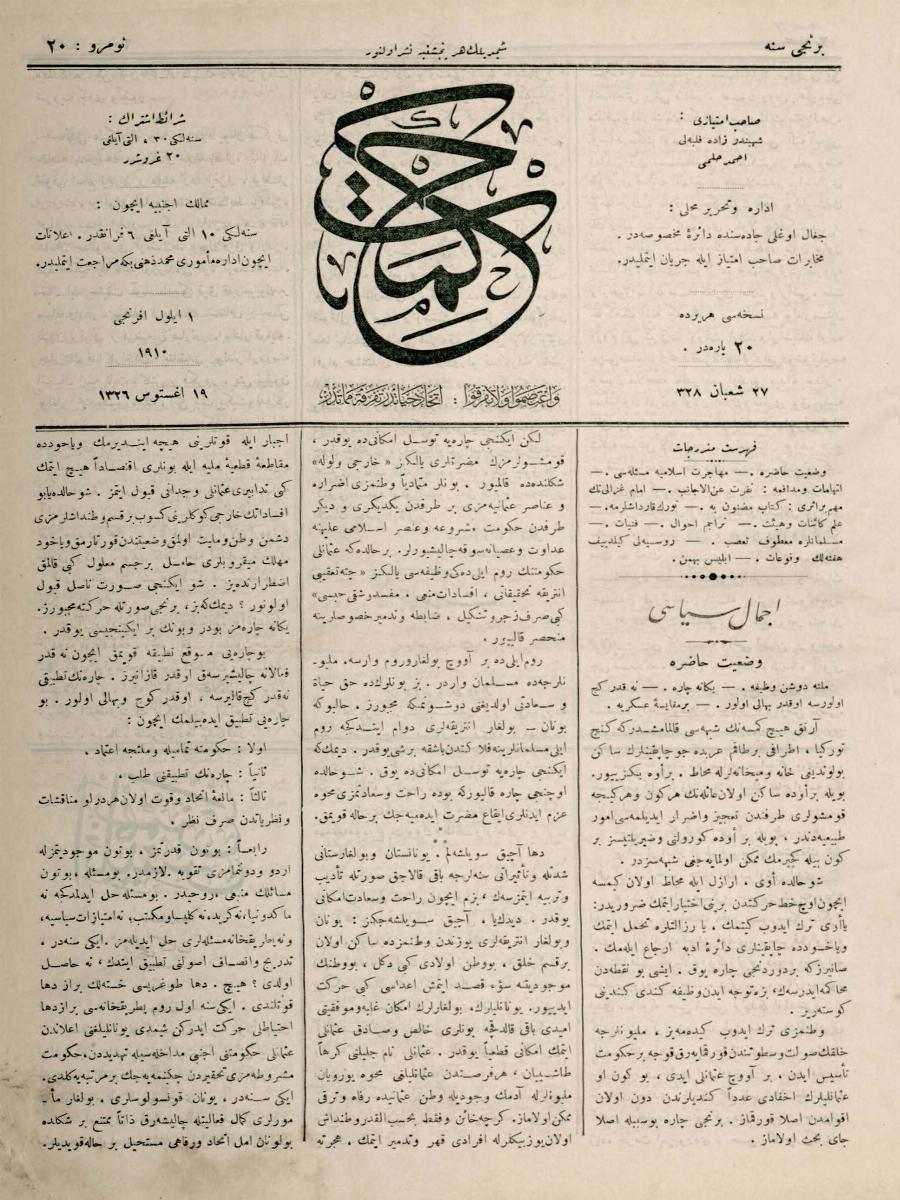 برنجی سنه
شمدیلك هر پنجشنبه نشر اولنور
نومرو : ۲۰
صاحب امتیازی :
شهبندر زاده فلبه‌لی
احمد حلمی
اداره وتحریر محلی :
جغال اوغلی جاده‌سنده دائرهٔ مخصوصه‌در .
مخابرات صاحب امتیاز ایله جریان ایتملیدر.
نسخه‌سی هریرده
۲۰ پاره‌در .
۲۷ شعبان ۳۲۸
حکمت
واعتصموا ولا تفرقوا : اتحاد حیاتدر تفرقه مماتدر
شرائط اشتراك :
سنه‌لکی ۳۰ ، التی آیلغی
۲۰ غروشدر
ممالك اجنبیه ایچون :
سنه‌لکی ۱۰ التی آیلغی ۶ فرانقدر . اعلانات
ایچون اداره مأموری محمد ذهنی بكه مراجعت ایتملیدر.
۱ ایلول افرنجی
۱۹۱۰
۱۹ اغستوس ۱۳۲۶
فهرست مندرجات
وضعیت حاضره . — مهاجرت اسلامیه مسئله‌سی . —
اتهامات ومدافعه : نفرت عن الاجانب . — امام غزالی‌نك
مهم براثری : كتاب مضنون به . — تورك قارداشلرمه . —
علم كائنات وهیئت . — تراجم احوال . — فنیات . —
مسلمانلره معطوف تعصب . — روسیه‌لی كیلدییف
هفته‌لك وقوعات . — ابلیس بهمن .
اجمال سیاسی
وضعیت حاضره
ملته دوشن وظیفه . — یكانه چاره . — نه قدر كج
اولورسه اوقدر بهالی اولور . — برمقایسهٔ عسكریه .
آرتق هیچ كمسه‌نك شبهه‌سی قالمامشدركه كنج
توركیا ، اطرافی برطاقم عربده جو چاپقینلرك ساكن
بولوندیغی خانه ومیخانه‌لرله محاط ، برأوه بكزییور.
بویله برأوده ساكن اولان عائله‌نك هركون وهركیجه
قومشولری طرفندن تعجیز واضرار ایدیلمه‌سی امور
طبیعیه‌دندر ، بویله بر أوده كورولتی وضیریلتیسز بر
كون بیله كچیرمك ممكن اولمایه‌جغی شبهه‌سزدر .
شو حالده أوی ، ارازل ایله محاط اولان كیمسه
ایچون اوچ خط حركتدن برینی اختیار ایتمك ضروریدر:
یا أوی ترك ایدوب كیتمك ، یا رزالتلره تحمل ایتمك
ویاخود ده چاپقینلری دائرهٔ ادبه ارجاع ایله‌مك .
صانیرزكه بردوردنجی چاره یوق . ایشی بو نقطه‌دن
محاكمه ایدرسه‌ك، بزه توجه ایدن وظیفه كندی كندینی
كوسته‌ریر .
وطنمزی ترك ایدوب كیده‌مه‌یز . ملیونلرجه
خلقك صولت وسطوتندن قورقمایه‌رق قوجه برحكومت
تأسیس ایدن ، بر آووج عثمانلی ایدی ، بو كون او
عثمانلیلرك احفادی عدداً كندیلرندن دون اولان
اقوامدن اصلا قورقماز . برنجی چاره بوسبیله اصلا
جای بحث اولاماز .
لكن ایكنجی چاره‌یه توسل امكانی ده یوقدر ،
قومشولرمزك مضرتلری یالكز « خارجی ولوله»
شكلنده‌ده قالمیور . بونلر متمادیاً وطنمزی اضراره
و عناصر عثمانیه‌مزی بر طرفدن یكدیكری و دیكر
طرفدن حكومت مشروعه وعنصر اسلامی علیهنه
عداوت وعصیانه سوقه چالیشیورلر. برحالده كه عثمانلی
حكومتنك روم ایلی ده‌كی وظیفه‌سی یالكز « چته تعقیبی
انتریقه تحقیقاتی ، افسادات منعی ، مفسدرشقی حبسی»
كبی صرف زجر وتنكیل ، ضابطه وتدمیر خصوصلرینه
منحصر قالییور .
روم ایلی ده بر آووچ بولغار وروم وارسه، ملیو-
نلرجه‌ده مسلمان واردر . بز بونلرك ده حق حیاة
و سعادتی اولدیغنی دوشونمكه مجبورز . حالبوكه
یونان — بولغار انتریقه‌لری دوام ایتدكجه روم
ایلی مسلمانلرینه فلاكتدن باشقه برشی یوقدر . دیمك كه
ایكنجی چاره‌یه توسل امكانی ده یوق . شو حالده
اوچنجی چاره قالیور كه بوده راحت وسعادتمزی محوه
عزم ایدنلری ایقاع مضرت ایده‌میه‌جك برحاله قویمق.
دها آچیق سویلشه‌لم . یونانستان وبولغارستانی
شدتله وتأثیراتی سنه‌لرجه باقی قالاجق صورتله تأدیب
وتربیه ایتمزسه‌ك ، بزم ایچون راحت وسعادت امكانی
یوقدر . دیدك یا ، آچیق سویلشه‌جكز : یونان
وبولغار انتریقه‌لری یوزندن وطنمزده ساكن اولان
برقسم خلق ، بووطن اولادی كبی دكل ، بووطنك
موجودیتنه سوء قصد ایتمش اعداسی كبی حركت
ایدییور. یونانلیلرك، بولغارلرك امكان غلبه وموفقیتی
امیدی باقی قالدقجه بونلری خالص وصادق عثمانلی
ایتمك امكانی قطعیاً یوقدر . عثمانلی نام جلیلنی كرهاً
طاشییان ، هرفرصتدن عثمانلیلغی محوه یورویان
ملیونلرله آدمك وجودیله وطن عثمانیده رفاه وترقی
ممكن اولاماز. كرچه خائن وفقط بحسب القدر وطنداش
اولان یوزبیكلرله افرادی قهر وتدمیر ایتمك ، هجرته
اجبار ایله قوتلرینی هیچه ایندیرمك ویاخودده
مقاطعهٔ قطعیهٔ ملیه ایله بونلری اقتصاداً هیچ ایتمك
كبی تدابیری عثمانلی وجدانی قبول ایتمز . شو حالده یابو
افساداتك خارجی كوكلرینی كسوب برقسم وطنداشلرمزی
دشمن وطن وملیت اولمق وضعیتندن قورتارمق ویاخود
مهلك میقروبلری حامل برجسم معلول كبی قالمق
اضطرارنده‌یز . شو ایكنجی صورت ناصل قبول
اولونور ؟ دیمك كه بز، برنجی صورتله حركته مجبورز.
یكانه چاره‌مز بودر وبونك بر ایكینجیسی یوقدر .
بوچاره‌یی موقع تطبیقه قویمق ایچون نه قدر
فعالانه چالیشیرسه‌ق اوقدر قازانیرز . چاره‌نك تطبیقی
نه قدر كج قالیرسه ، اوقدر كوج وبهالی اولور . بو
چاره‌یی تطبیق ایده‌بیلمك ایچون :
اولا : حكومته تمامیله وملتجه اعتماد .
ثانیاً : چاره‌نك تطبیقنی طلب .
ثالثاً : مانعهٔ اتحاد وقوت اولان هردرلو مناقشات
ونظریاتدن صرف نظر .
رابعاً : بوتون قدرتمز ، بوتون موجودیتمزله
اردو ودونانمامزی تقویه لازمدر. بومسئله ، بوتون
مسائلك منبعی ، روحیدر . بومسئله حل ایدلمدكجه نه
ماكدونیا، نه كرید، نه كلیسا ومكتب، نه امتیازات سیاسیه،
ونه بطریقخانه مسئله‌لری حل ایدیله‌مز. ایكی سنه‌در ،
تدریج وانصاف اصولنی تطبیق ایتدك ، نه حاصل
اولدی ؟ هیچ . دها طوغریسی خسته‌لك براز دها
قوتلندی . ایكی سنه اول روم بطریقخانه‌سی برازدها
احتیاطلی حركت ایدركن شیمدی یونانلیلغنی اعلاندن
عثمانلی حكومتنی اجنبی مداخله‌سیله تهدیددن، حكومت
مشروطه‌مزی تحقیردن چكنمه‌یه‌جك بر مرتبه‌یه كلدی.
ایكی سنه‌در ، یونان قونسولوسلری . بولغار مأ-
مورلری كمال فعالیتله چالیشه‌رق ذاتاً ممتنع بر شكلده
بولونان امل اتحاد ورفاهی مستحیل بر حاله قویدیلر.